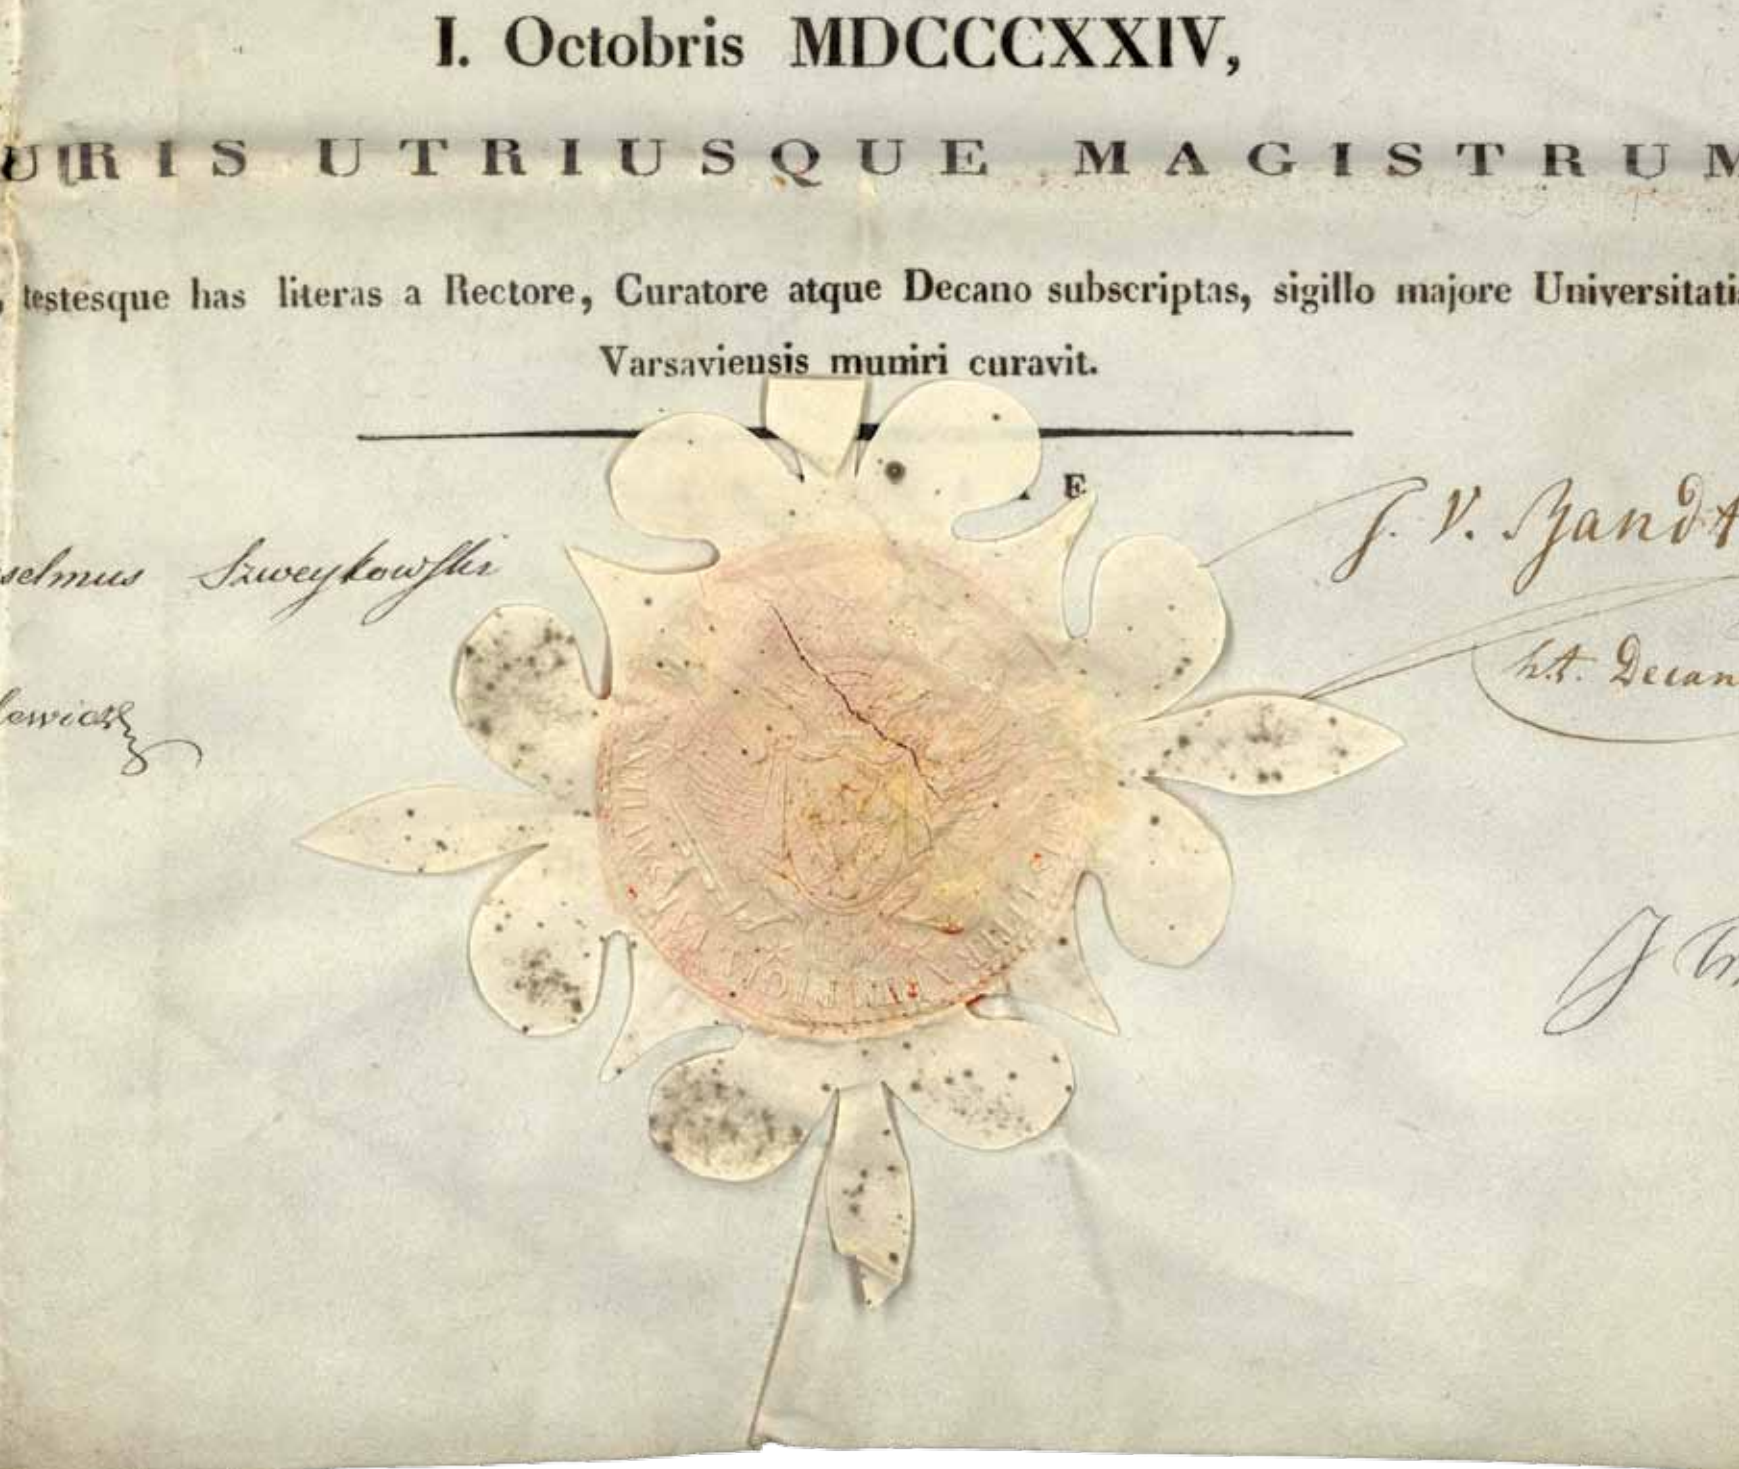 I. Octobris MDCCCXXIV,
URIS UTRIUSQUE MAGISTRUM
, testesque has literas a Rectore, Curatore atque Decano subscriptas, sigillo majore Universitatis
Varsaviensis muniri curavit.
E
selmus Szweykowski
J. V. Bandt
lewicz
h.t. Decan
J